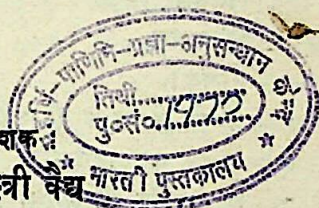 पाणिनि-प्रज्ञा-अनुसन्धान
तिथी..............
पु०सं० 1970
भारती पुस्तकालय
शक
त्री वैद्य